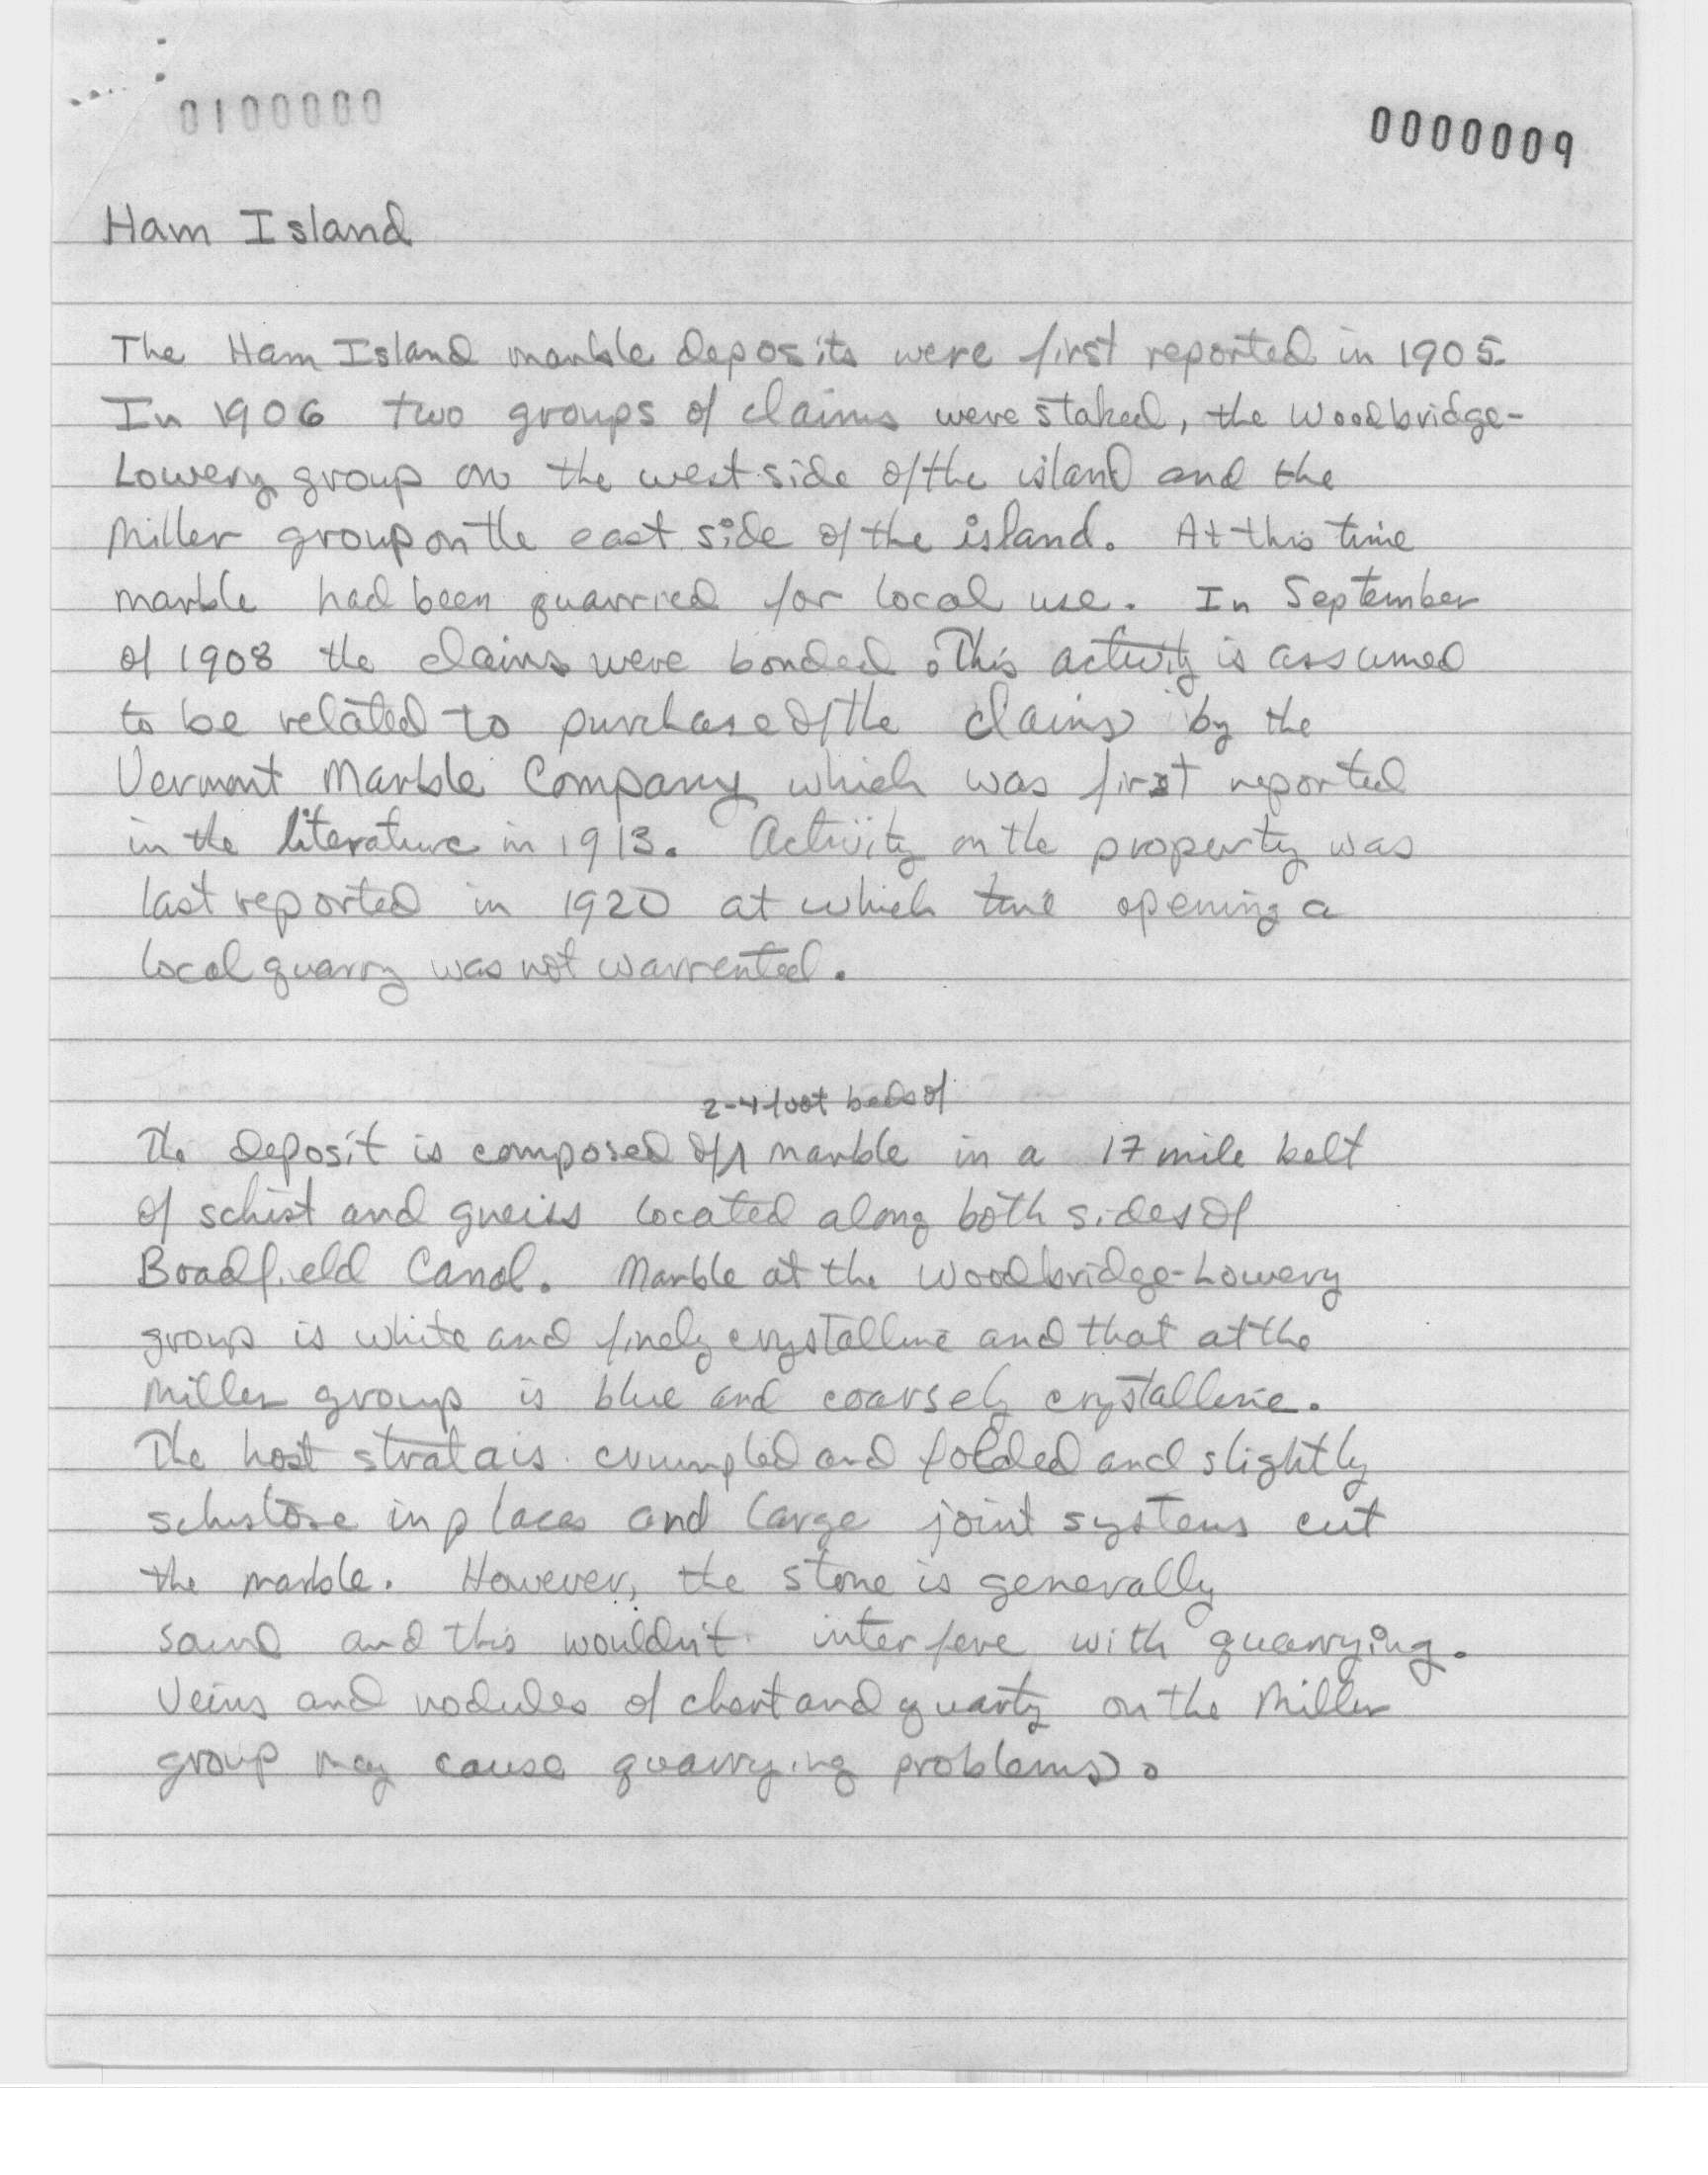 0100000
0000009
Ham Island
The Ham Island marble deposits were first reported in 1905.
In 1906 two groups of claims were staked, the Woodbridge-
Lowery group on the west side of the island and the
Miller group on the east side of the island. At this time
marble had been quarried for local use. In September
of 1908 the claims were bonded. This activity is assumed
to be related to purchase of the claims by the
Vermont Marble Company which was first reported
in the literature in 1913. Activity on the property was
last reported in 1920 at which time opening a
local quarry was not warrented.
2-4 foot beds of
The deposit is composed of ^ marble in a 17 mile belt
of schist and gneiss located along both sides of
Bradfield Canal. Marble at the Woodbridge-Lowery
group is white and finely crystalline and that at the
Miller group is blue and coarsely crystalline.
The host strata is crumpled and folded and slightly
schistose in places and large joint systems cut
the marble. However, the stone is generally
sound and this wouldn't interfere with quarrying.
Veins and nodules of chert and quartz on the Miller
group may cause quarrying problems.